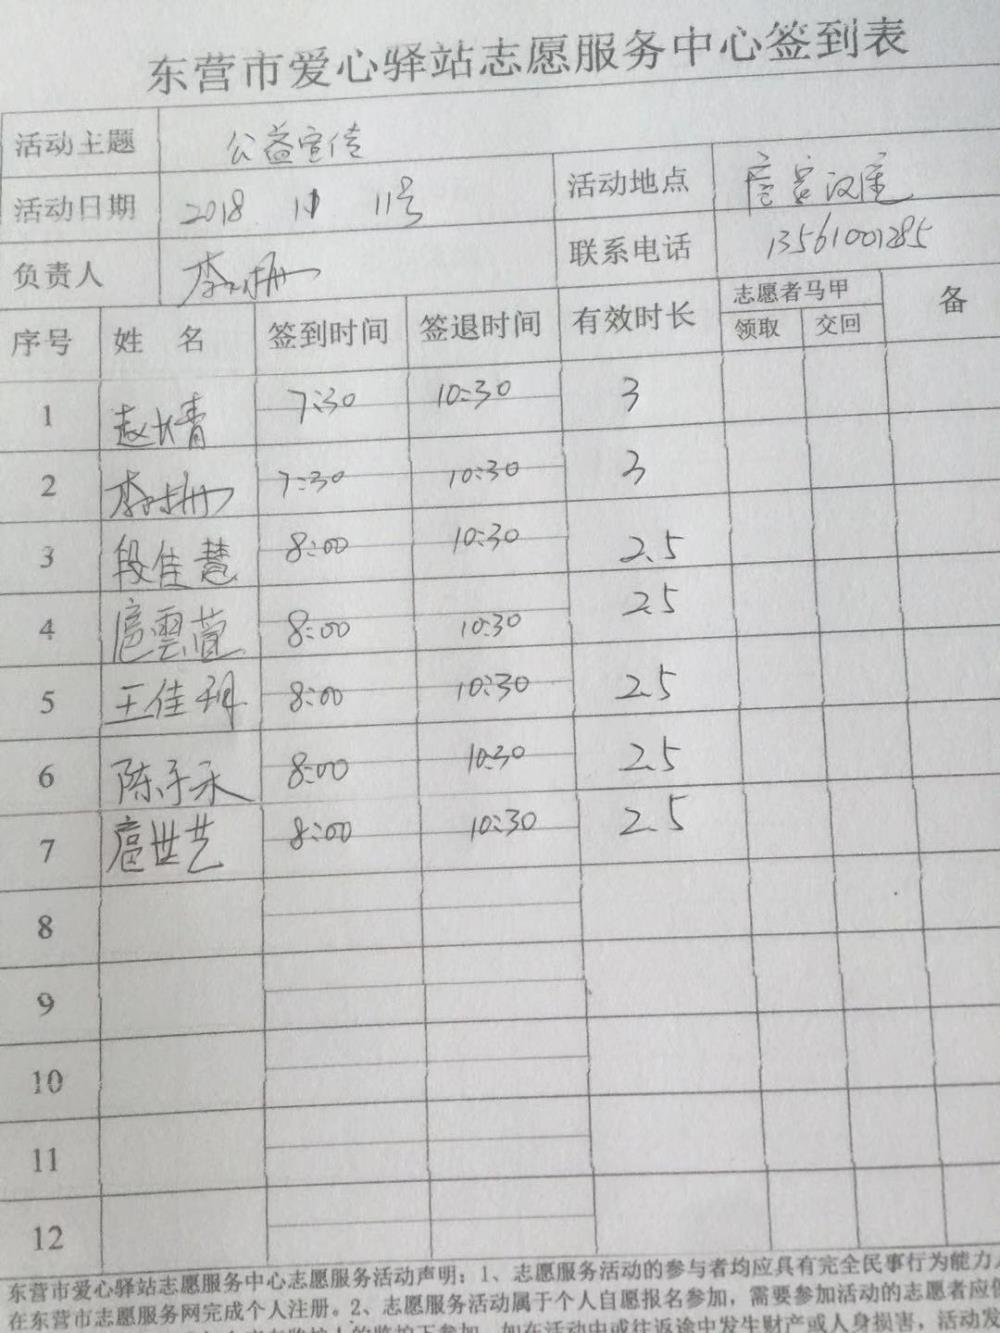 东营市爱心驿站志愿服务中心签到表
活动主题 公益宣传
活动日期 2018 11 11号 活动地点
负责人 李 联系电话 13561001285
序号 姓 名 签到时间 签退时间 有效时长 志愿者马甲 备
领取 交回
1 赵长青 7:30 10:30 3
2 李 7:30 10:30 3
3 段佳慧 8:00 10:30 2.5
4 扈雲萱 8:00 10:30 2.5
5 王佳 8:00 10:30 2.5
6 陈子禾 8:00 10:30 2.5
7 扈世艺 8:00 10:30 2.5
8
9
10
11
12
东营市爱心驿站志愿服务中心志愿服务活动声明：1、志愿服务活动的参与者均应具有完全民事行为能力
在东营市志愿服务网完成个人注册。2、志愿服务活动属于个人自愿报名参加，需要参加活动的志愿者应
监护下参加，如在活动中或往返途中发生财产或人身损害，活动发